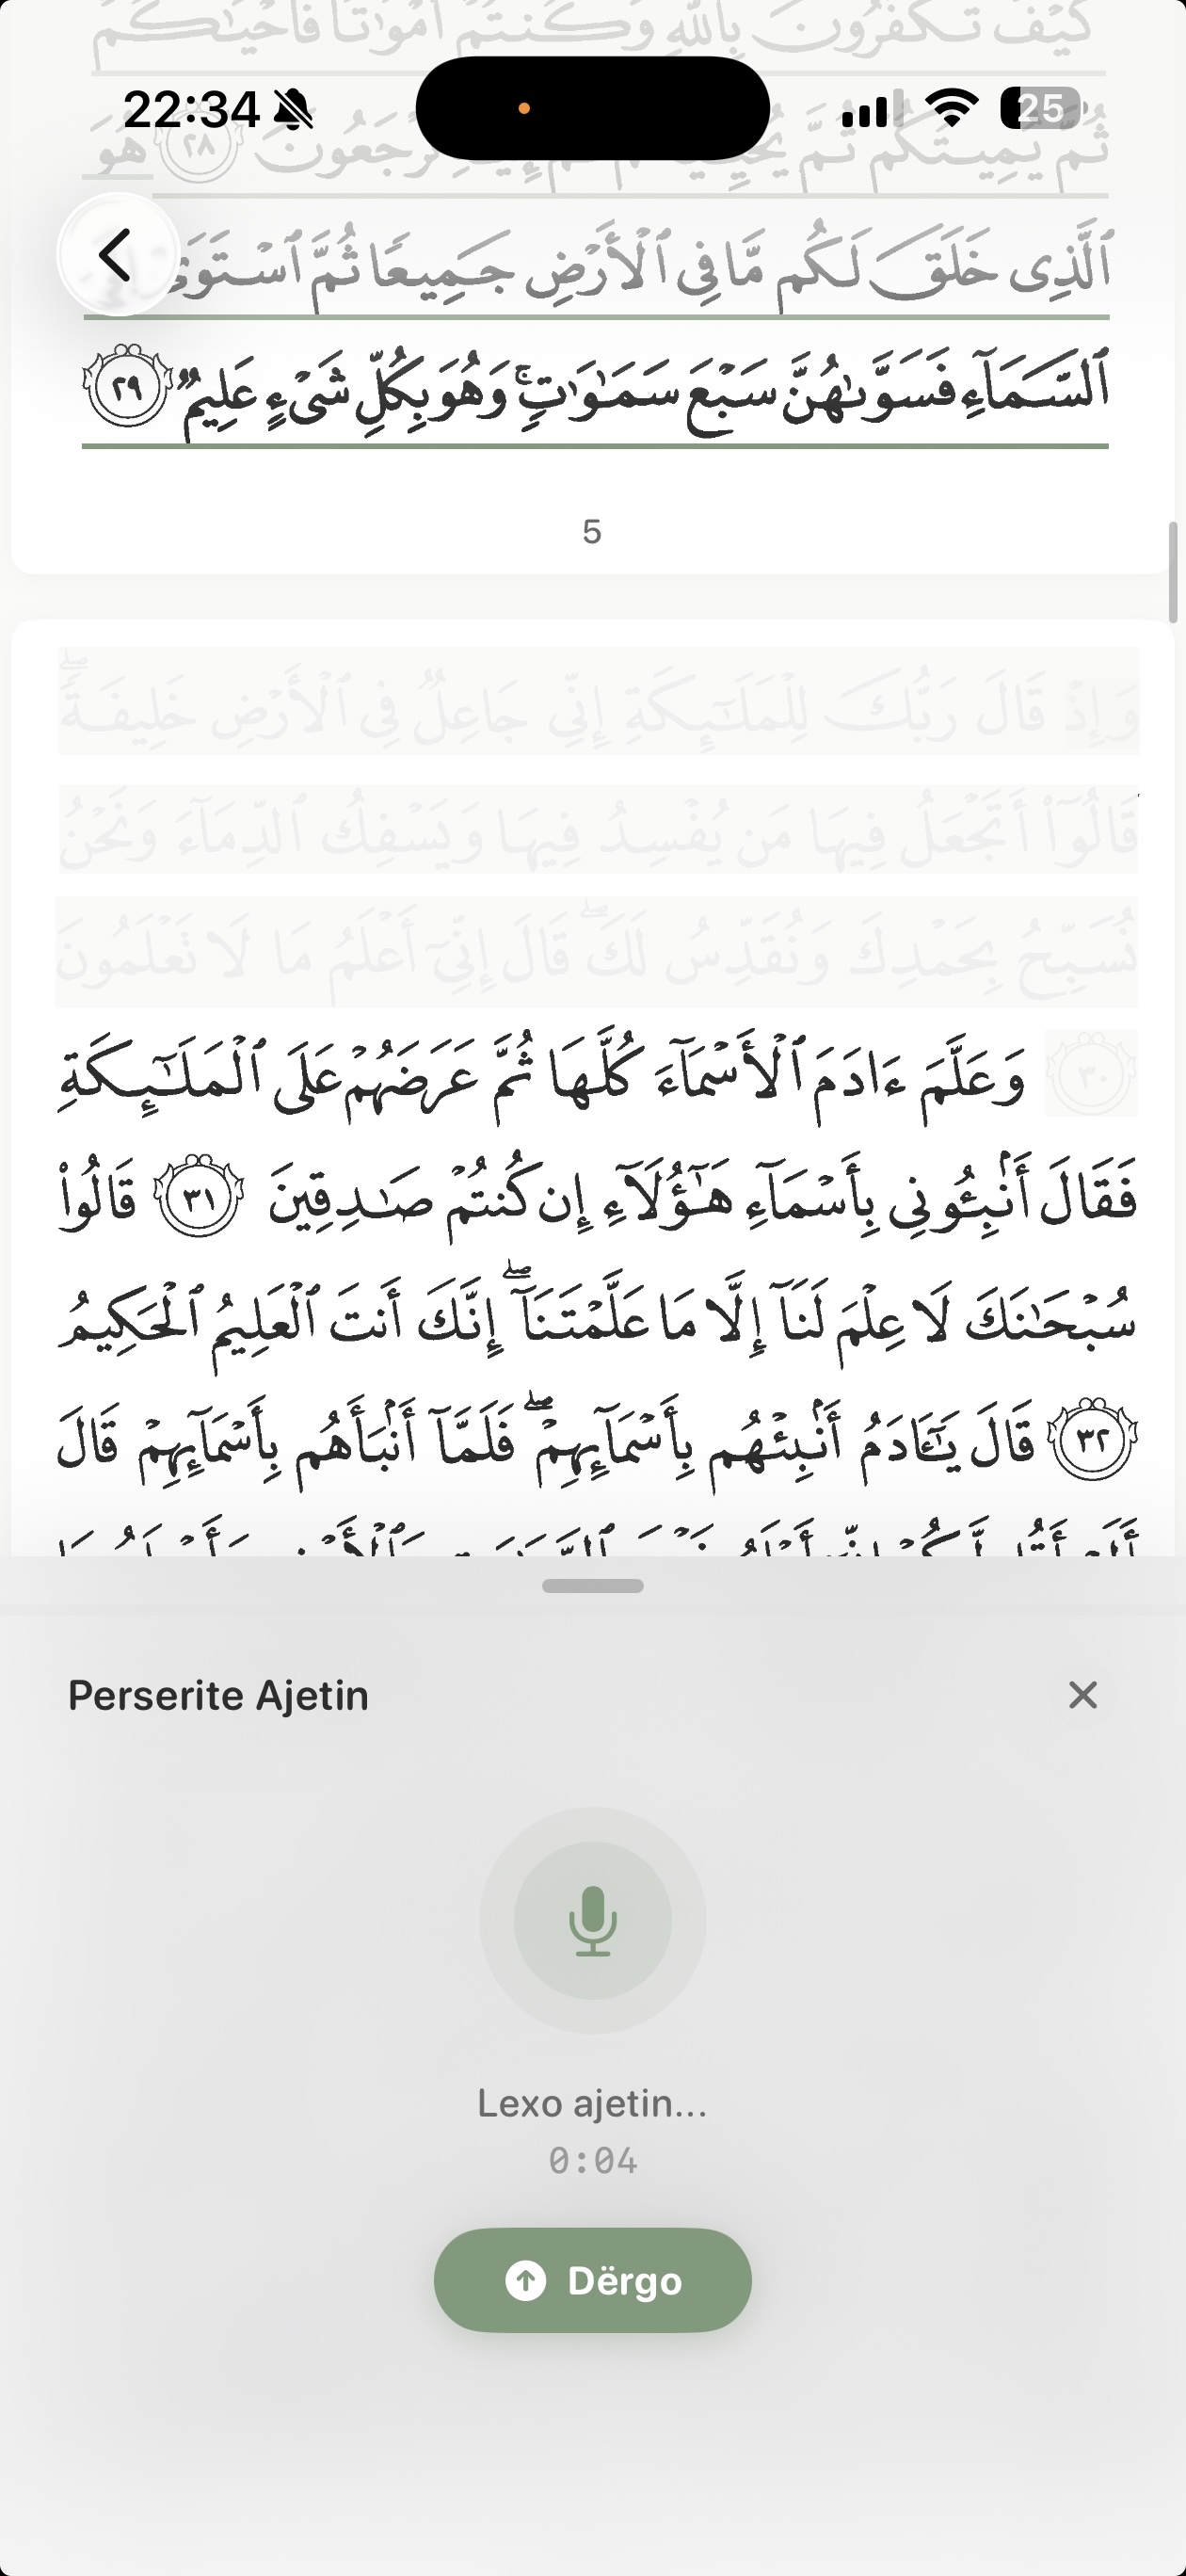 كَيْفَ تَكْفُرُونَ بِٱللَّهِ وَكُنتُمْ أَمْوَٰتًا فَأَحْيَـٰكُمْ
22:34 25
ثُمَّ يُمِيتُكُمْ ثُمَّ يُحْيِيكُمْ تُرْجَعُونَ ٢٨ هُوَ
ٱلَّذِى خَلَقَ لَكُم مَّا فِى ٱلْأَرْضِ جَمِيعًا ثُمَّ ٱسْتَوَىٰٓ
ٱلسَّمَآءِ فَسَوَّىٰهُنَّ سَبْعَ سَمَـٰوَٰتٍ ۚ وَهُوَ بِكُلِّ شَىْءٍ عَلِيمٌ ٢٩
5
وَإِذْ قَالَ رَبُّكَ لِلْمَلَـٰٓئِكَةِ إِنِّى جَاعِلٌ فِى ٱلْأَرْضِ خَلِيفَةً ۖ
قَالُوٓا۟ أَتَجْعَلُ فِيهَا مَن يُفْسِدُ فِيهَا وَيَسْفِكُ ٱلدِّمَآءَ وَنَحْنُ
نُسَبِّحُ بِحَمْدِكَ وَنُقَدِّسُ لَكَ ۖ قَالَ إِنِّىٓ أَعْلَمُ مَا لَا تَعْلَمُونَ
٣٠ وَعَلَّمَ ءَادَمَ ٱلْأَسْمَآءَ كُلَّهَا ثُمَّ عَرَضَهُمْ عَلَى ٱلْمَلَـٰٓئِكَةِ
فَقَالَ أَنۢبِـُٔونِى بِأَسْمَآءِ هَـٰٓؤُلَآءِ إِن كُنتُمْ صَـٰدِقِينَ ٣١ قَالُوا۟
سُبْحَـٰنَكَ لَا عِلْمَ لَنَآ إِلَّا مَا عَلَّمْتَنَآ ۖ إِنَّكَ أَنتَ ٱلْعَلِيمُ ٱلْحَكِيمُ
٣٢ قَالَ يَـٰٓـَٔادَمُ أَنۢبِئْهُم بِأَسْمَآئِهِمْ ۖ فَلَمَّآ أَنۢبَأَهُم بِأَسْمَآئِهِمْ قَالَ
Perserite Ajetin
Lexo ajetin...
0:04
Dërgo